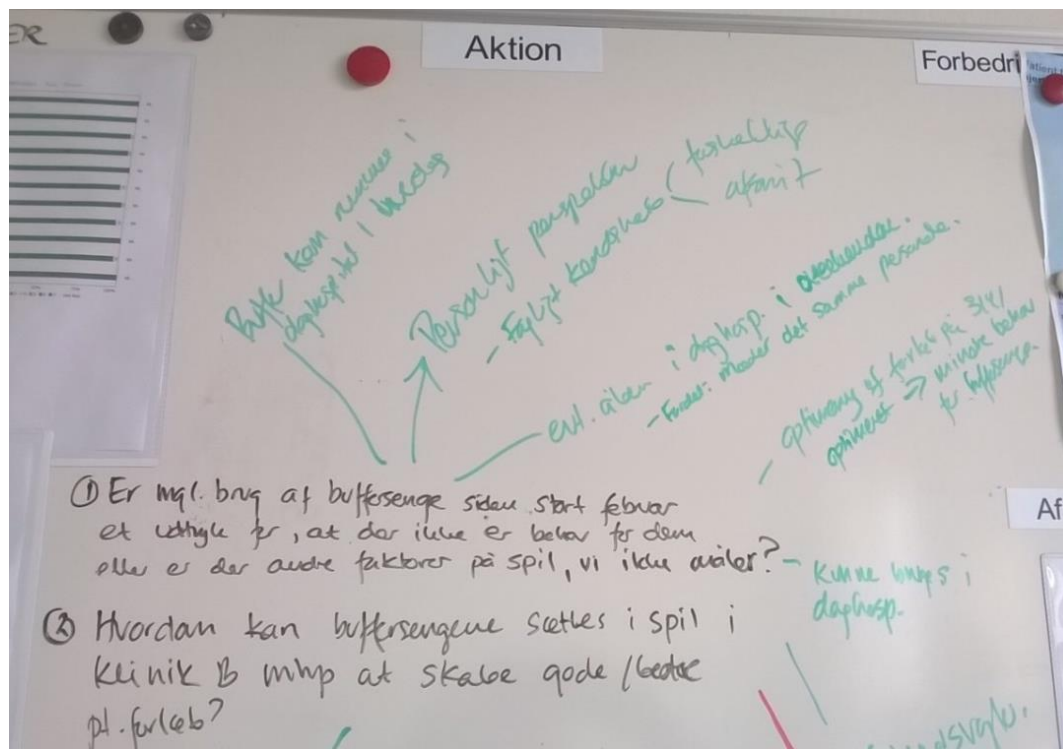 ER
Aktion
Forbedri
kom i
daghospitalet i
Personligt perspektiv
- Fagligt
afsnit
evt. åben i daghosp. i
- Fordel: møder det samme personale.
optimering af forløb på 3141
optimeret → mindre behov
for buffersenge.
① Er mgl. brug af buffersenge siden start februar
et udtryk for, at der ikke er behov for dem
eller er der andre faktorer på spil, vi ikke måler?
- Kunne bruges i
daghosp.
Af
② Hvordan kan buffersengene sættes i spil i
Klinik B mhp at skabe gode/bedre
pt. forløb?